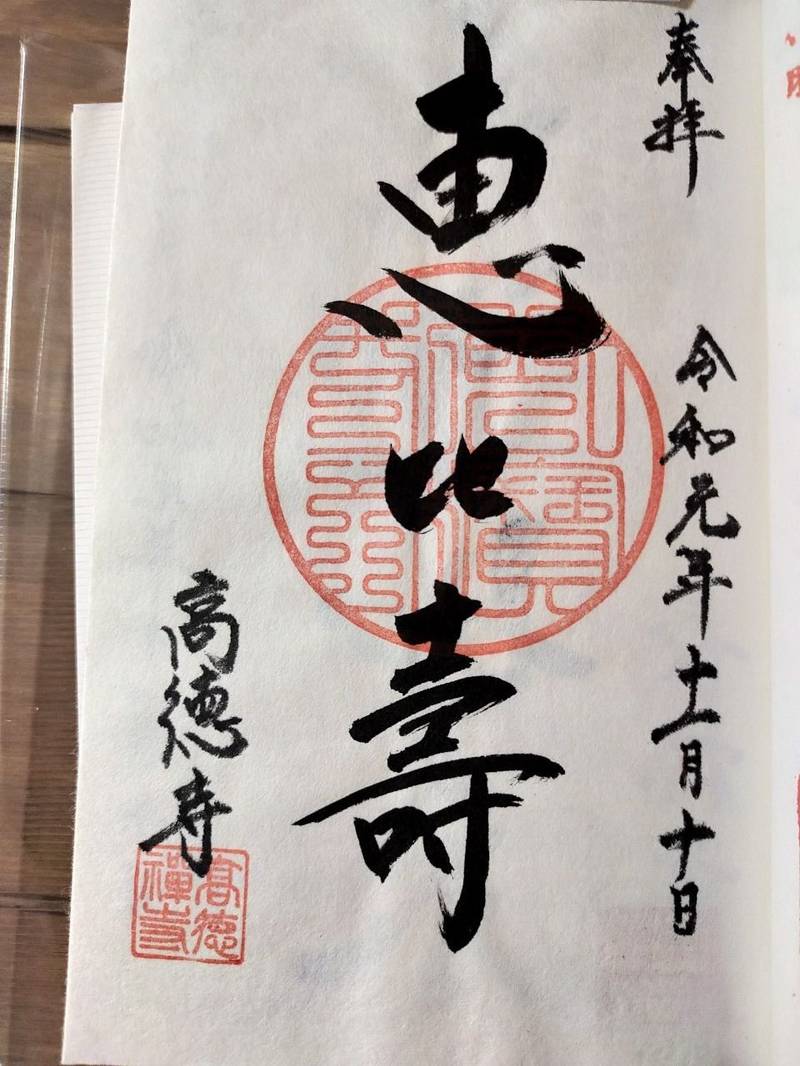 奉拝
令和元年十一月十日
恵比壽
高徳寺
高德
禅寺